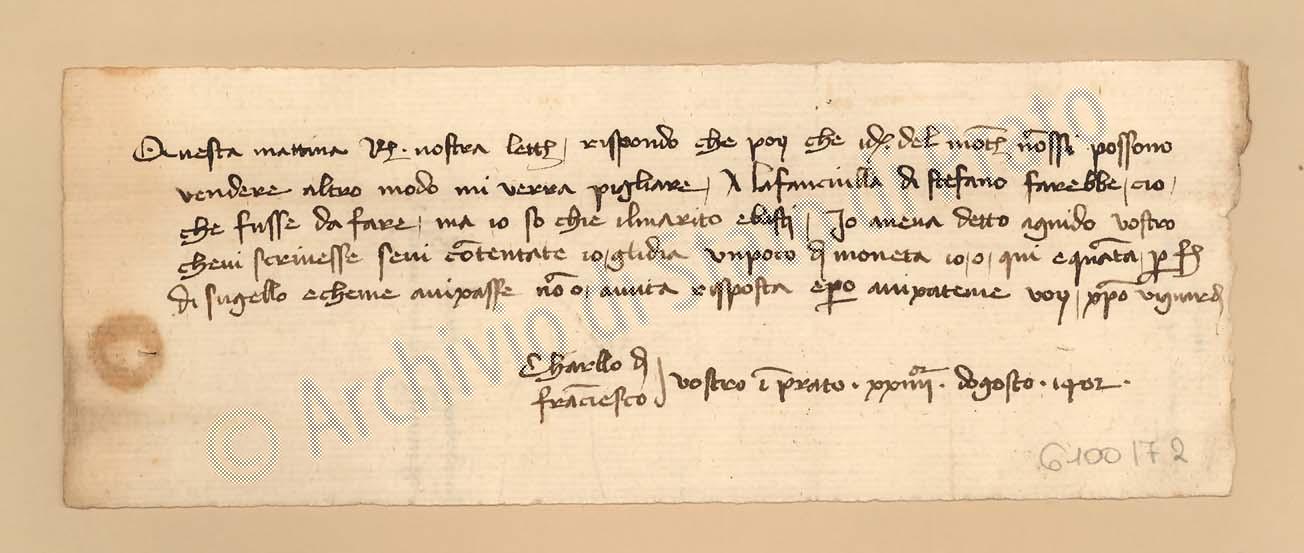 Questa mattina Rh. vostra letta, rispondo che poy che id. del mōte nōssi possono
vendere altro modo mi verra pigliare, A la fanciulla di stefano farebbe, cio,
che fusse da fare, ma io so chie ilmarito e, Jo aveva detto aguido vostro
chevi scrivesse sevi cōtentate io, glidia unpoco di moneta io, o, qui equāta, p
di sugello echeme avixasse nō o, avuta rissposta epo avixateme voy, xpō viguardi
Charllo di
frāciesco
vostro ī prato. xxiiii. dogosto. 1402.
6100172
© Archivio di Stato di Prato